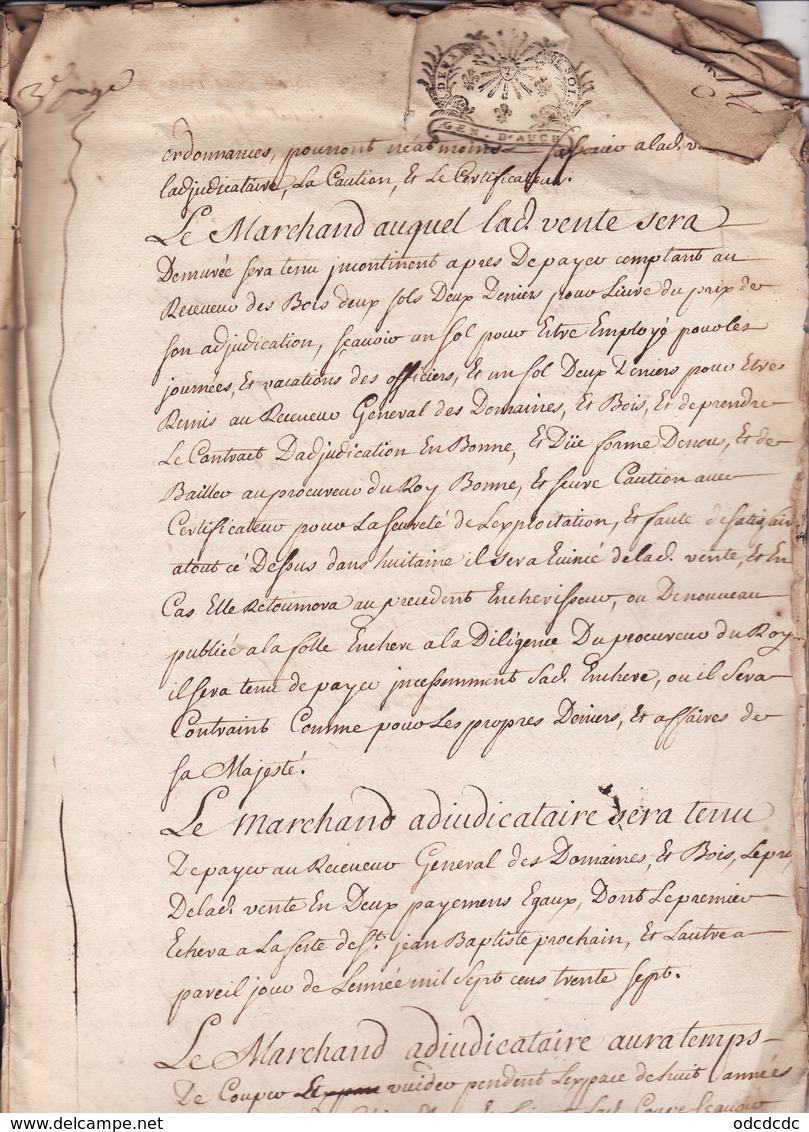 3e page
DEUX
DE SOLS
GEN. D'AUCH
ordonnances, pourront néatmoins a lad. v
ladjudicataire, La Caution, Et Le Certificateur.
Le Marchand auquel lad. vente sera
Demurée sera tenu jncontinent apres De payer comptant au
Receveur des Bois deux sols Deux Deniers pour Livre du prix de
son adjudication, sçauoir un sol pour Estre Employé pour les
journées, Et vacations des officiers, Et un sol Deux Deniers pour Etre
Remis au Receveur General des Domaines, Et Bois, Et de prendre
Le Contract Dadjudication En Bonne, Et Düe forme Et de
Bailler au procureur du Roy Bonne, Et seure Caution auec
Certificateur pour La seureté de Lexploitation, Et faute de satisfair
atout cé Dessus dans huitaine il sera Euincé de lad. vente, Et En
Cas Elle Retournera au precedent Encherisseur, ou De nouueau
publiée a la folle Enchere a la Diligence Du procureur du Roy
il sera tenu de payer jncessemment Sad. Enchere, ou il Sera
Contraint Comme pour Les propres Deniers, Et affaires de
sa Majesté.
Le marchand adiudicataire sera tenu
De payer au Receveur General des Domaines, Et Bois, Le pri
De lad. vente En Deux payemens Egaux, Dont Le premier
Echera a La feste de St. jean Baptiste prochain, Et Lautre a
pareil jour de Lennée mil Sept cens trente sept.
Le Marchand adiudicataire aura temps
De Couper vuider pendent Lexpace de huit années
odcdcdc